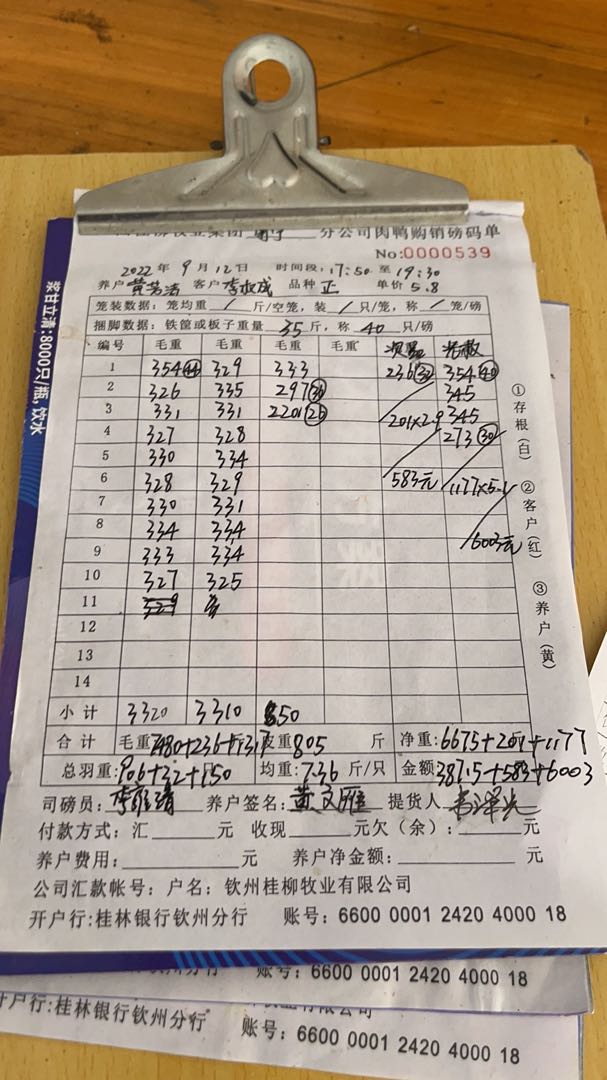 牧业集团 分公司肉鸭购销磅码单
No:0000539
2022 年 9 月 12 日 时间段: 17:50 至 19:30
养户 客户 品种 正 单价 5.8
笼装数据: 笼均重 / 斤/空笼, 装 / 只/笼, 称 / 笼/磅
捆脚数据: 铁筐或板子重量 35 斤, 称 40 只/磅
编号 毛重 毛重 毛重 毛重 次品
1 354 44 329 333 236 32 354 40
2 326 335 297 345
3 331 331 220 26 201×2.9 345
4 327 328 273 30
5 330 334
6 328 329 583元
7 330 331
8 334 334 6003元
9 333 334
10 327 325
11 329
12
13
14
小计 3320 3310 850
合计 毛重 7480+236+1317 皮重 805 斤 净重: 6675+201+1177
总羽重: 906+32+150 均重: 7.36 斤/只 金额 38715+583+6003
司磅员: 养户签名: 提货人
付款方式: 汇 元 收现 元欠(余): 元
养户费用: 元 养户净金额: 元
公司汇款帐号: 户名: 钦州桂柳牧业有限公司
开户行:桂林银行钦州分行 账号: 6600 0001 2420 4000 18
①存根(白)
②客户(红)
③养户(黄)
浆甘立清:8000只/瓶,饮水
账号: 6600 0001 2420 4000 18
开户行:桂林银行钦州分行 账号: 6600 0001 2420 4000 18